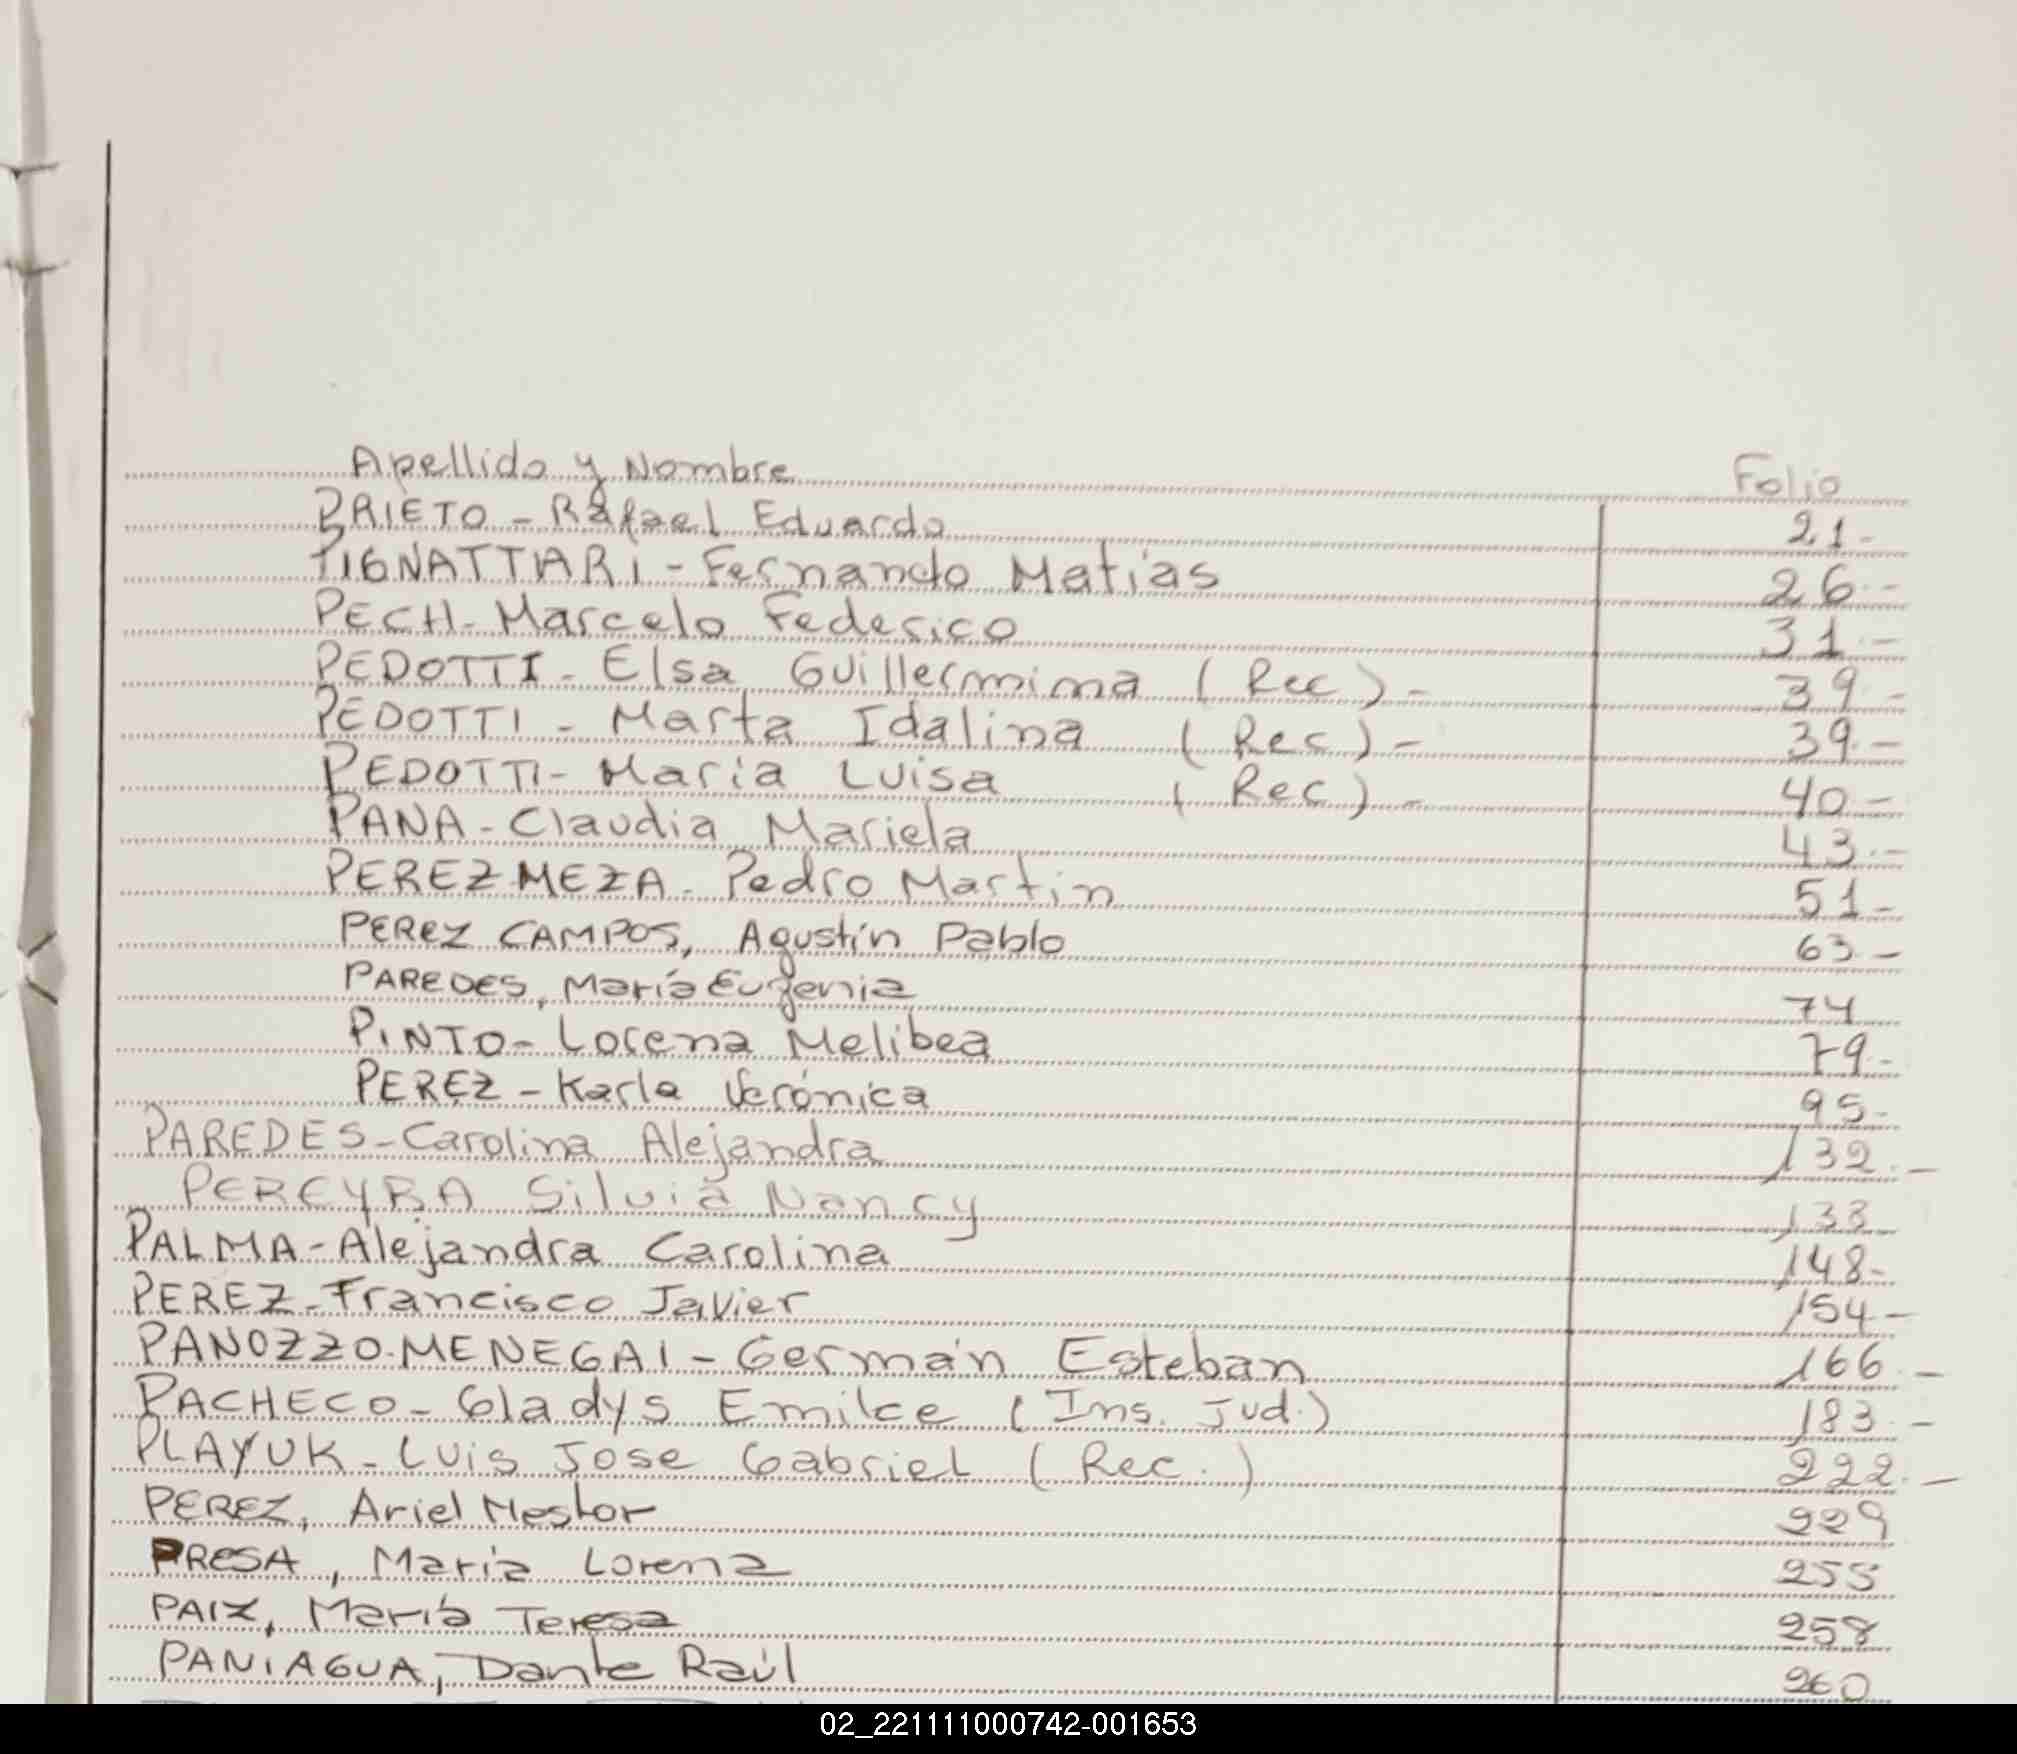 Apellido y Nombre Folio
PRIETO - Rafael Eduardo 21-
PIGNATTIARI - Fernando Matias 26.-
PECH - Marcelo Federico 31.-
PEDOTTI - Elsa Guillermima (Rec) - 39.-
PEDOTTI - Marta Idalina (Rec) - 39.-
PEDOTTI - Maria Luisa (Rec) - 40.-
PANA - Claudia Mariela 43.-
PEREZ MEZA - Pedro Martin 51-
PEREZ CAMPOS, Agustín Pablo 63-
PAREDES, María Eugenia 74
PINTO - Lorena Melibea 79-
PEREZ - Karla Verónica 95-
PAREDES - Carolina Alejandra 132.-
PEREYRA Silvia Nancy 133
PALMA - Alejandra Carolina 148-
PEREZ - Francisco Javier 154-
PANOZZO MENEGAI - Germán Esteban 166.-
PACHECO - Gladys Emilce (Ins. Jud.) 183.-
PLAYUK - Luis Jose Gabriel (Rec.) 222.-
PEREZ, Ariel Nestor 229
PRESA, María Lorena 255
PAIZ, María Teresa 258
PANIAGUA, Dante Raúl 260
02_221111000742-001653